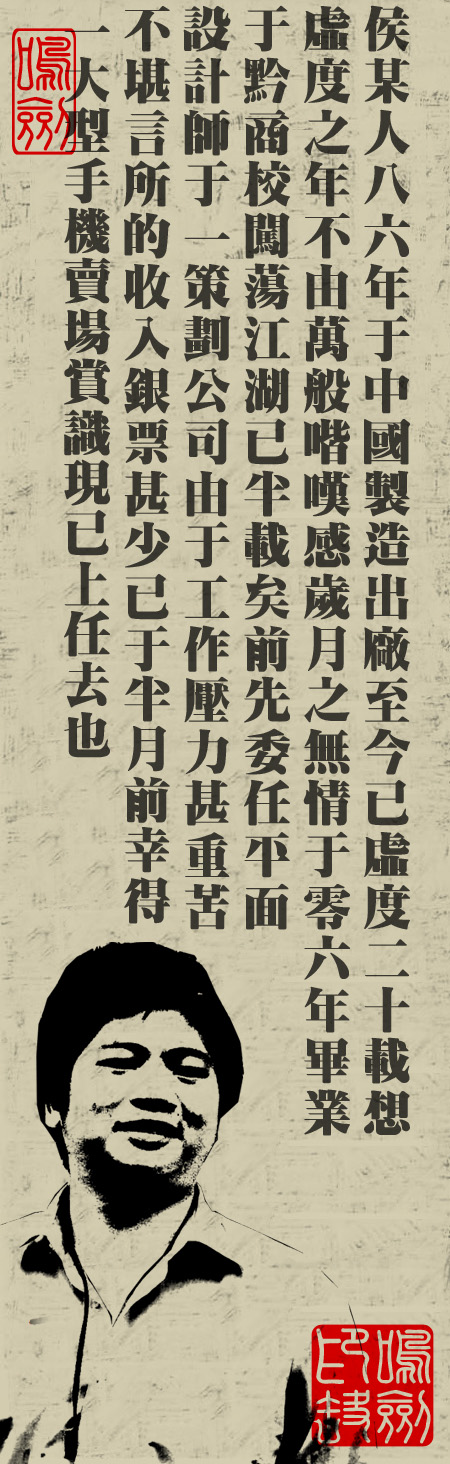 侯某人八六年于中國製造出廠至今已虛度二十載想
虛度之年不由萬般喈嘆感歲月之無情于零六年畢業
于黔商校闖蕩江湖已半載矣前先委任平面
設計師于一策劃公司由于工作壓力甚重苦
不堪言所的收入銀票甚少已于半月前幸得
一大型手機賣場賞識現已上任去也
鳴劍
鳴劍
印